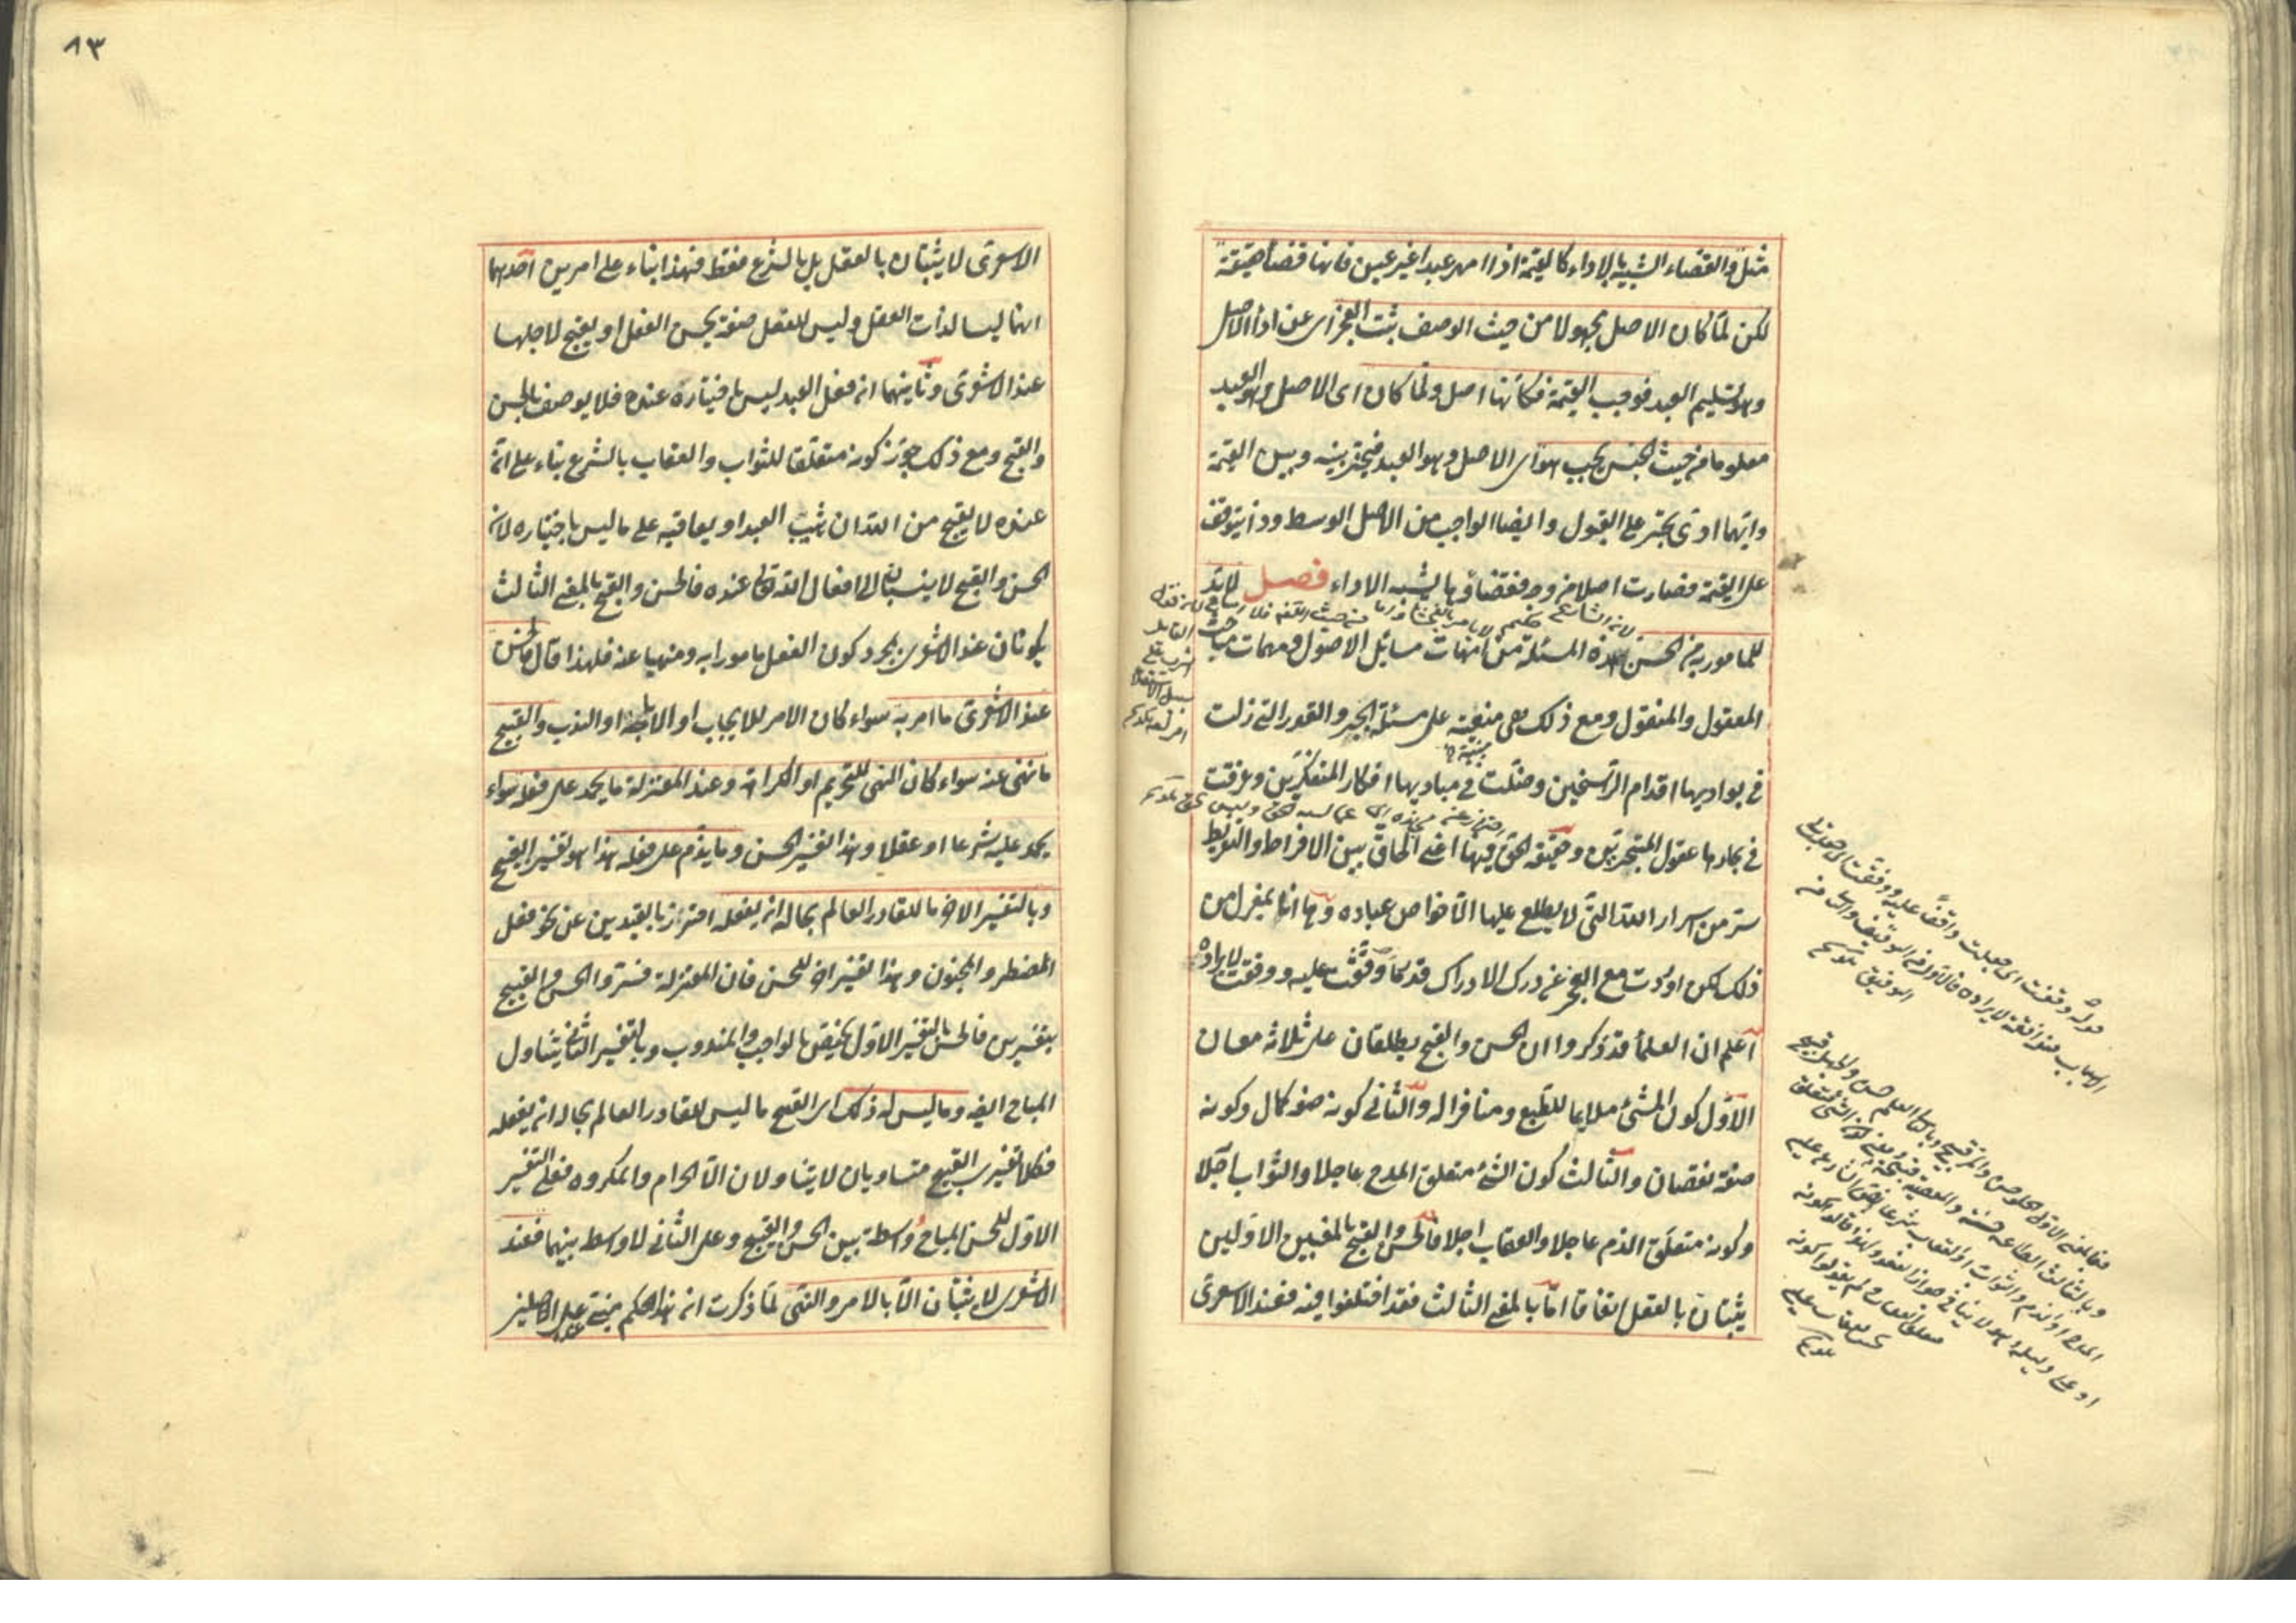 مثل والقضاء الشبيه بالاداء كالقيمة اذا امهر عبدا غير عين فانها قضاء حقيقة
لكن لما كان الاصل مجهولا من حيث الوصف ثبت العجز اى عن اداء الاصل
وهو تسليم العبد فوجب القيمة فكأنها اصل ولما كان اى الاصل وهو العبد
معلوما من حيث الجنس يجب هو اى الاصل وهو العبد فيخير بينه وبين القيمة
وايهما ادى يجبر على القبول وايضا الواجب من الاصل الوسط وذا يتوقف
على القيمة فصارت اصلا من وجه فقضاؤها يشبه الاداء فصل لا بد
للمأمور به من الحسن هذه المسئلة من امهات مسائل الاصول ومهمات مباحث
المعقول والمنقول ومع ذلك هى مبنية على مسئلة الجبر والقدر التى زلت
فى بواديها اقدام الراسخين وضلت فى مباديها افكار المتفكرين وغرقت
فى بحارها عقول المتبحرين وحقيقة الحق فيها اعنى الحاق بين الافراط والتفريط
سر من اسرار الله التى لا يطلع عليها الا خواص عباده وها انا بمعزل من
ذلك لكن اوردت مع العجز عن درك الادراك قدر ما وقفت عليه ووفقت لايراده
اعلم ان العلماء قد ذكروا ان الحسن والقبح يطلقان على ثلاثة معان
الاول كون الشئ ملايما للطبع ومنافرا له والثانى كونه صفة كمال وكونه
صفة نقصان والثالث كون الشئ متعلق المدح عاجلا والثواب اجلا
وكونه متعلق الذم عاجلا والعقاب اجلا فالحسن والقبح بالمعنيين الاولين
يثبتان بالعقل اتفاقا اما بالمعنى الثالث فقد اختلفوا فيه فعند الاشعرى
قوله وقفت اى جعلت واقفا عليه ووفقت اى جعلت
الاسباب متوافقة لايراده فالاول من التوقيف والثانى من
التوفيق تلويح
٨٣
الاشعرى لا يثبتان بالعقل بل بالشرع فقط فهذا بناء على امرين احدهما
انهما ليسا لذات الفعل وليس للفعل صفة يحسن الفعل او يقبح لاجلها
عند الاشعرى وثانيهما ان فعل العبد ليس باختياره عنده فلا يوصف بالحسن
والقبح ومع ذلك جوز كونه متعلقا للثواب والعقاب بالشرع بناء على ان
عنده لا يقبح من الله ان يثيب العبد او يعاقبه على ما ليس باختياره لان
الحسن والقبح لا ينسبان الى افعال الله تعالى عنده فالحسن والقبح بالمعنى الثالث
يكونان عند الاشعرى بمجرد كون الفعل مامورا به ومنهيا عنه فلهذا قال فالحسن
عند الاشعرى ما امر به سواء كان الامر للايجاب او الاباحة او الندب والقبيح
ما نهى عنه سواء كان النهى للتحريم او الكراهة وعند المعتزلة ما يحمد على فعله سواء
يحمد عليه شرعا او عقلا وهذا تفسير الحسن وما يذم على فعله هذا هو تفسير القبيح
وبالتفسير الاخر ما للقادر العالم بحاله ان يفعله احترز بالقيدين عن نحو فعل
المضطر والمجنون وهذا تفسير اخر للحسن فان المعتزلة فسروا الحسن والقبيح
بتفسيرين فالحسن بالتفسير الاول يختص بالواجب والمندوب وبالتفسير الثانى يتناول
المباح ايضا وما ليس له ذلك اى القبيح ما ليس للقادر العالم بحاله ان يفعله
فكلا تفسيرى القبيح متساويان لا يتناولان الا الحرام والمكروه فعلى التفسير
الاول للحسن المباح واسطة بين الحسن والقبيح وعلى الثانى لا واسطة بينهما فعند
الاشعرى لا يثبتان الا بالامر والنهى لما ذكرت ان هذا الحكم مبنى على الاصلين